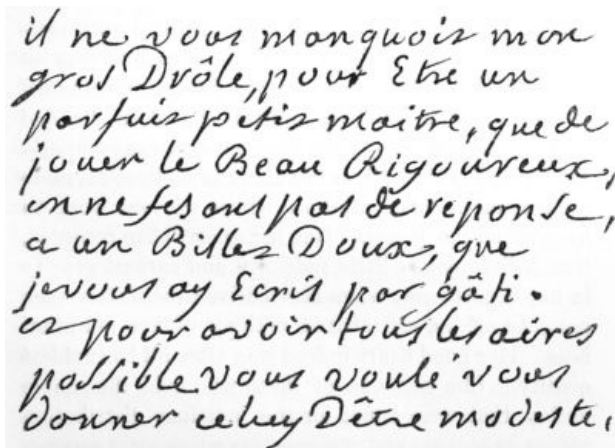 il ne vous manquoit mon
gros Drôle, pour Etre un
parfait petit maitre, que de
jouer le Beau Rigoureux,
en ne fesant pas de reponse,
a un Billet Doux, que
je vous ay Ecrit par gâti.
et pour avoir tous les aires
possible vous voulé vous
donner celuy D'être modeste,